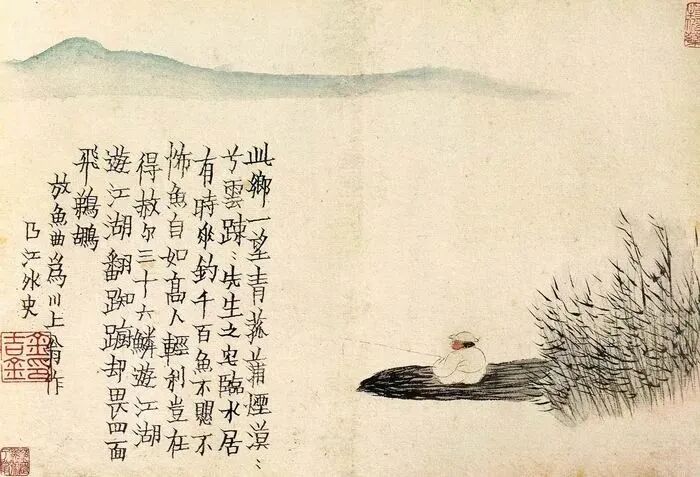 此鄉一望青菰蒲煙漠〻
兮雲踈〻先生之宅臨水居
有時垂釣千百魚不愳不
怖魚自如高人輕利豈在
得赦尔三十六鱗遊江湖
遊江湖翻踟躕却畏四面
飛鵜鶘
放魚曲為川上翁作
江外史
金吉金印